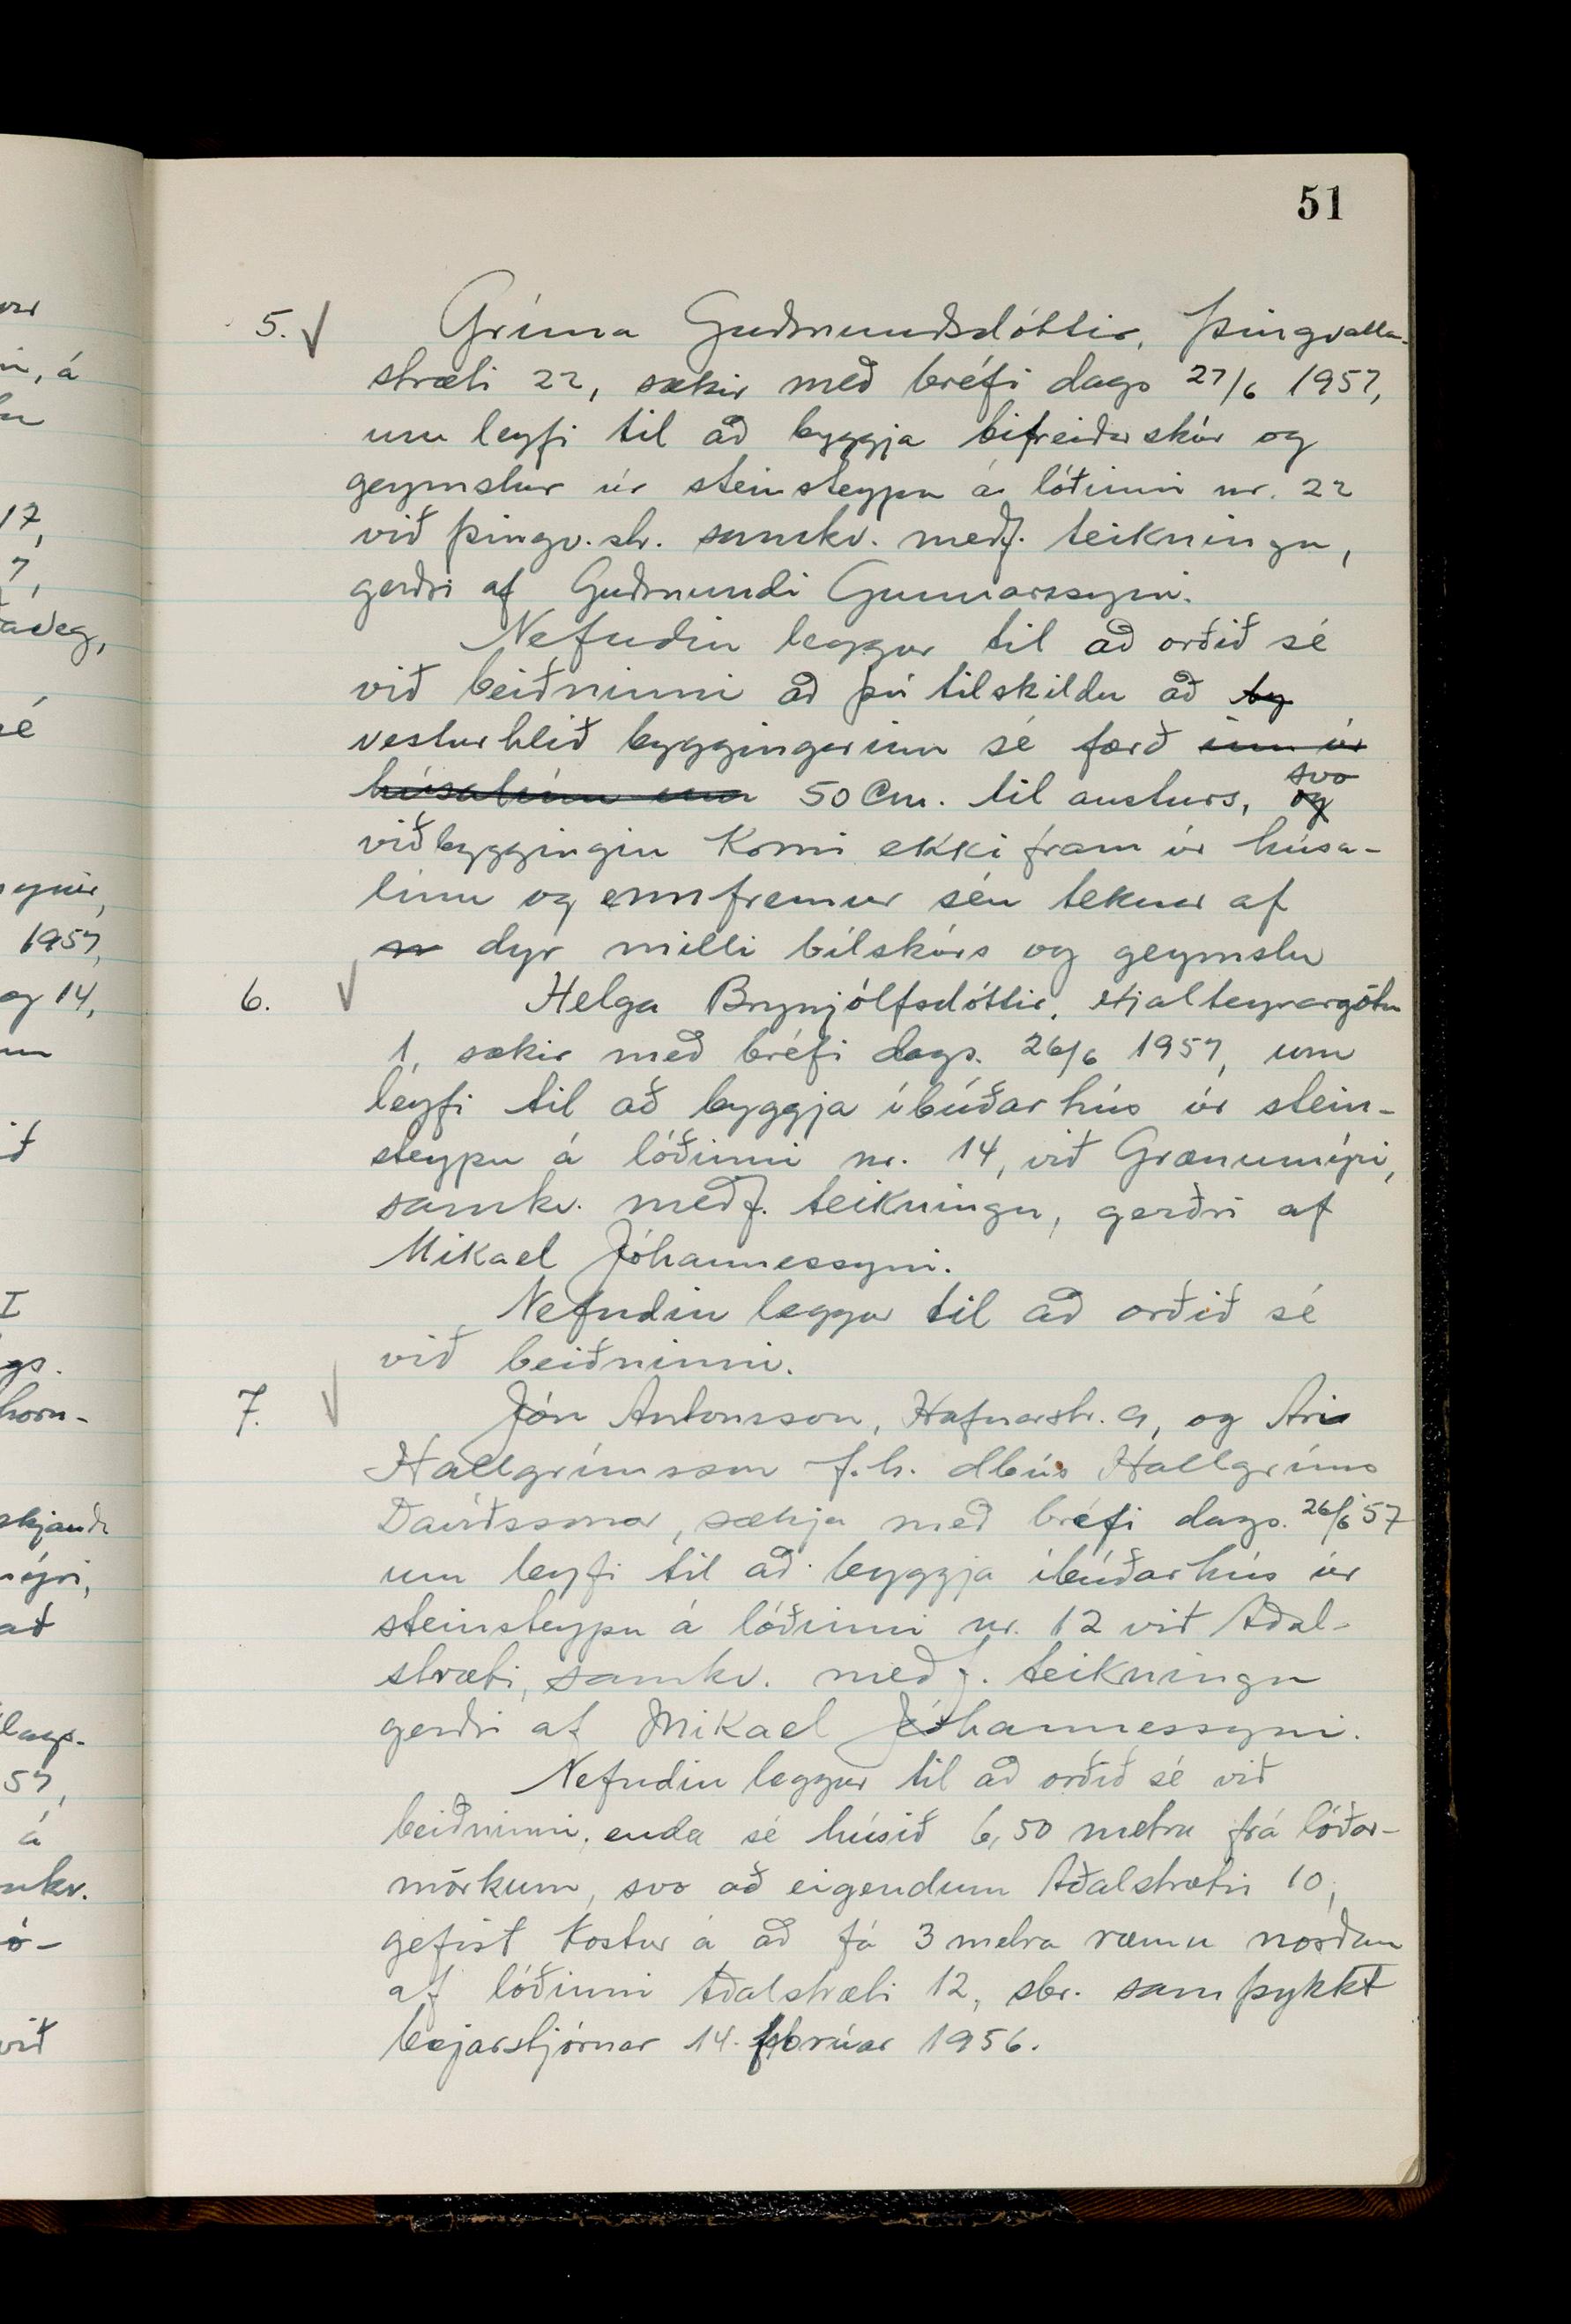 51
5. √ Gríma Guðmundsdóttir, Þingvalla-
stræti 22, sækir með bréfi dags 27/6 1957,
um leyfi til að byggja bifreiðarskúr og
geymslur úr steinsteypu á lóðinni nr. 22
við Þingv.str. samkv. meðf. teikningu,
gerðri af Guðmundi Gunnarssyni.
Nefndin leggur til að orðið sé
við beiðninni að því tilskildu að by
vesturhlið byggingarinn sé færð inn úr
svo
húsalínu um 50 Cm. til austurs, og
viðbyggingin komi ekki fram úr húsa-
línu og ennfremur séu teknar af
dyr milli bílskúrs og geymslu
6. √ Helga Brynjólfsdóttir, Hjalteyrargötu
1, sækir með bréfi dags. 26/6 1957, um
leyfi til að byggja íbúðarhús úr stein-
steypu á lóðinni nr. 14, við Grænumýri,
samkv. meðf. teikningu, gerðri af
Mikael Jóhannessyni.
Nefndin leggur til að orðið sé
við beiðninni.
7. √ Jón Antonsson, Hafnarstr. 9, og Aris
Hallgrímsson f.h. dbús Hallgríms
Davíðssonar, sækja með bréfi dags. 26/6 '57
um leyfi til að byggja íbúðarhús úr
steinsteypu á lóðinni nr. 12 við Aðal-
stræti, samkv. meðf. teikningu
gerðri af Mikael Jóhannessyni.
Nefndin leggur til að orðið sé við
beiðninni, enda sé húsið 6,50 metra frá lóðar-
mörkum, svo að eigendum Aðalstrætis 10,
gefist kostur á að fá 3 metra ræmu norðan
af lóðinni Aðalstræti 12, sbr. samþykkt
bæjarstjórnar 14. febrúar 1956.